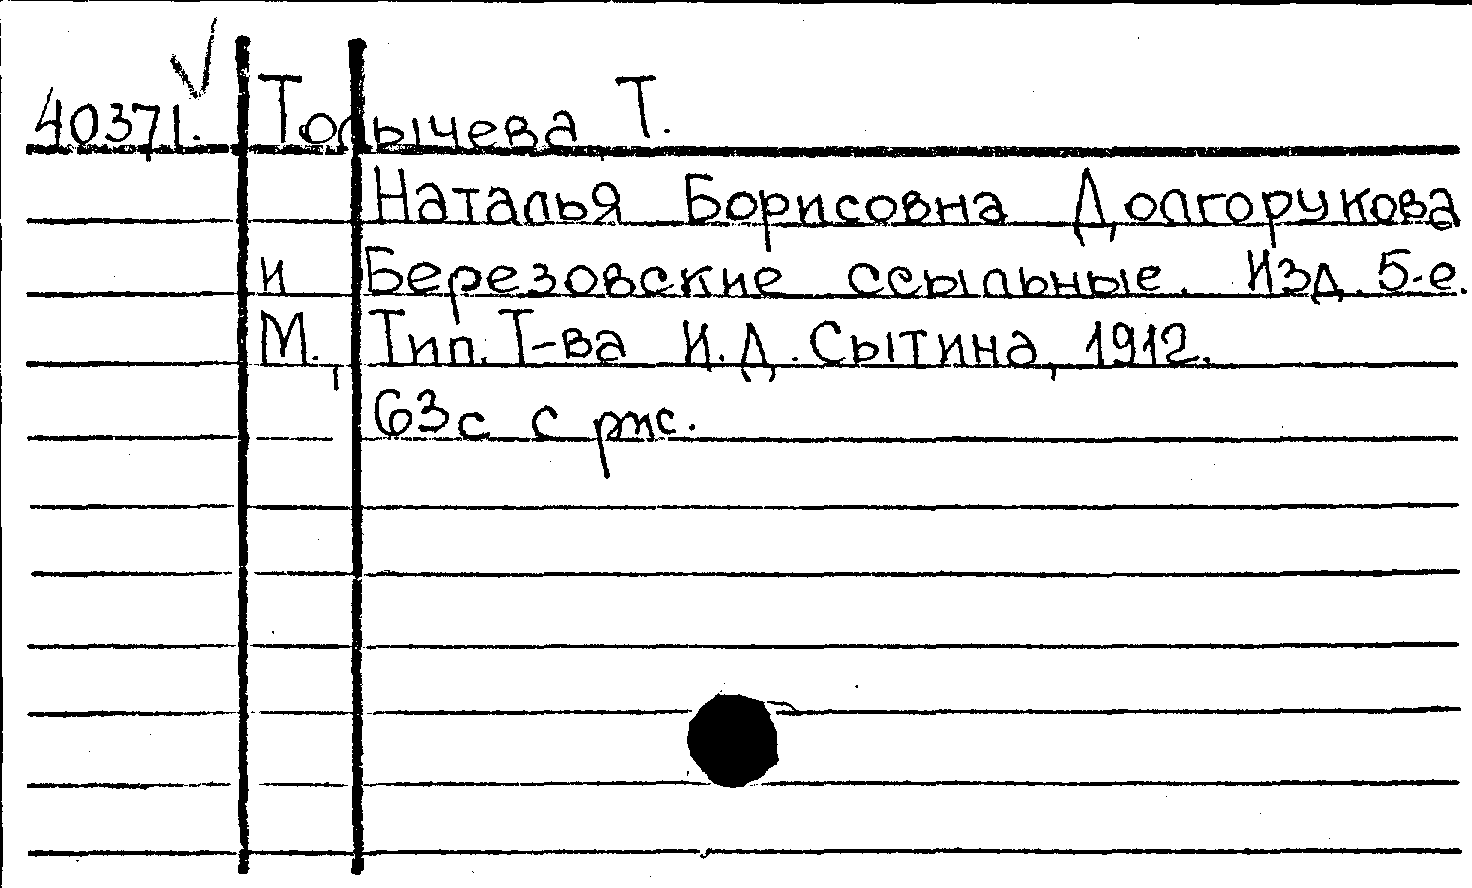 40371. Толычева Т.
Наталья Борисовна Долгорукова
и Березовские ссыльные. Изд. 5-е.
М., Тип. Т-ва И.Д. Сытина, 1912.
63с с рис.